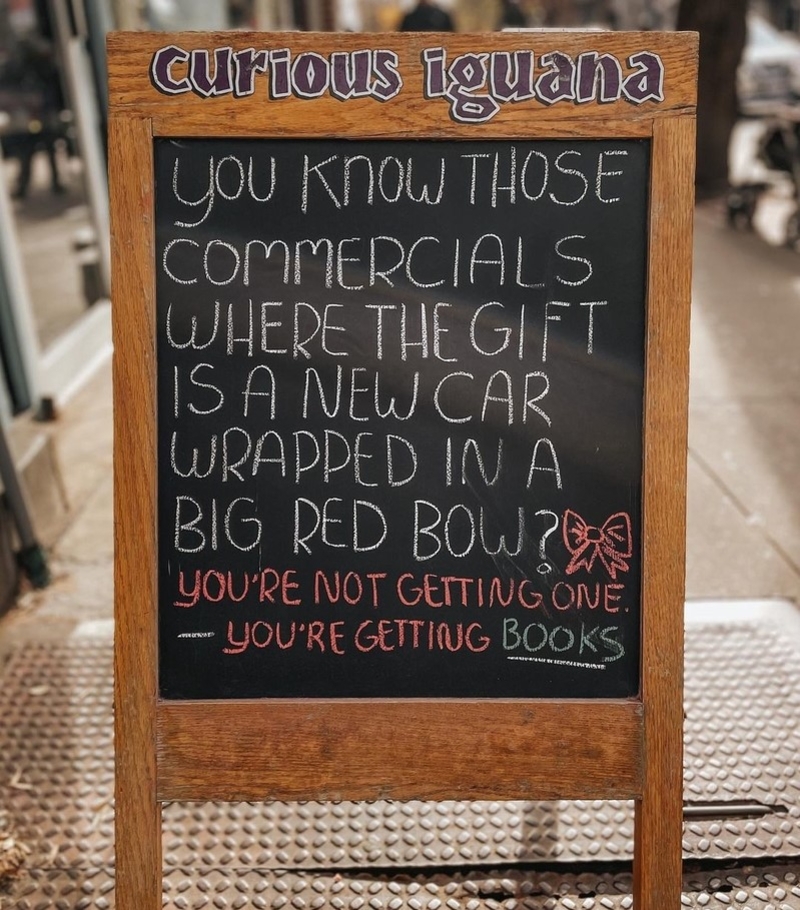 curious iguana
YOU KNOW THOSE
COMMERCIALS
WHERE THE GIFT
IS A NEW CAR
WRAPPED IN A
BIG RED BOW?
YOU'RE NOT GETTING ONE.
YOU'RE GETTING BOOKS